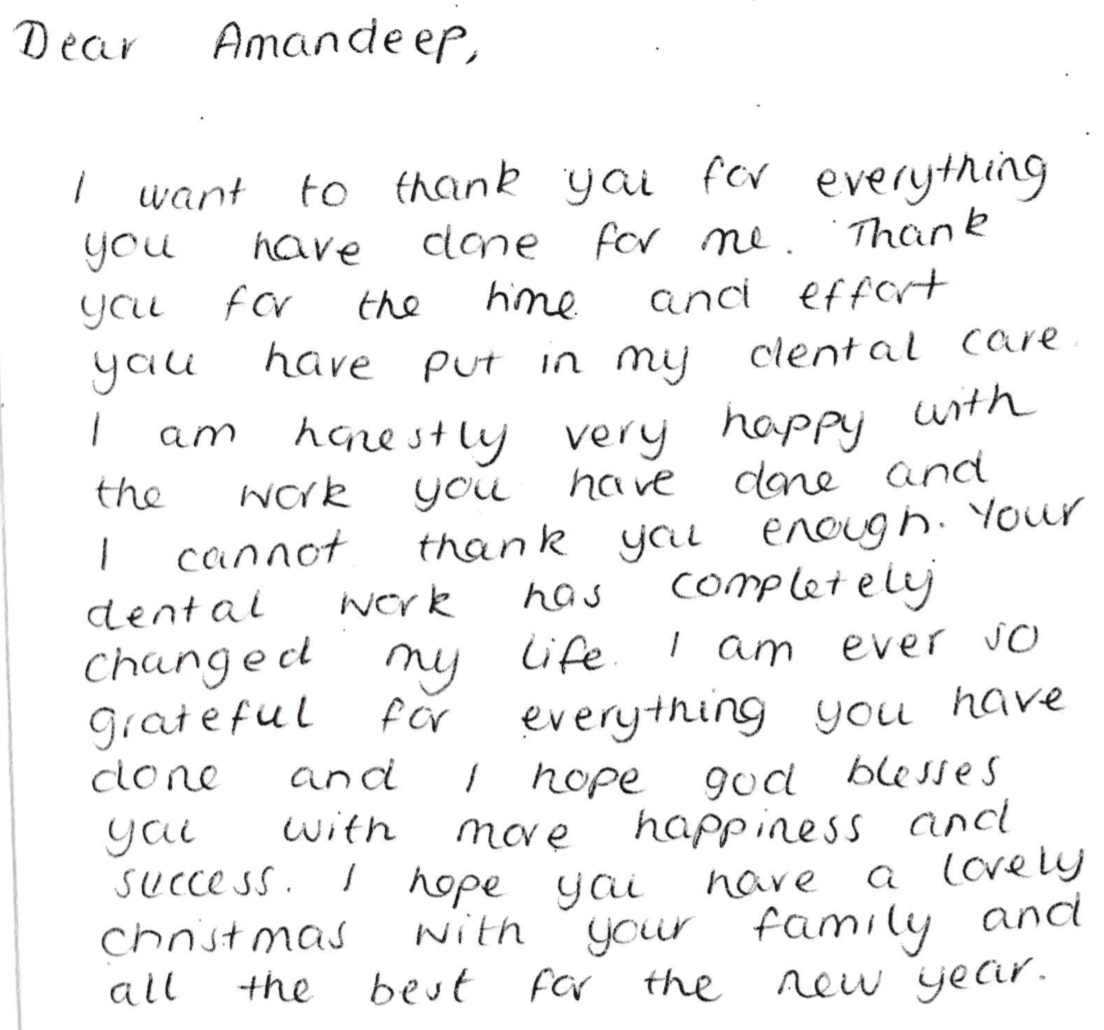 Dear Amandeep,
I want to thank you for everything
you have done for me. Thank
you for the time and effort
you have put in my dental care.
I am honestly very happy with
the work you have done and
I cannot thank you enough. Your
dental work has completely
changed my life. I am ever so
grateful for everything you have
done and I hope god blesses
you with more happiness and
success. I hope you have a lovely
christmas with your family and
all the best for the new year.